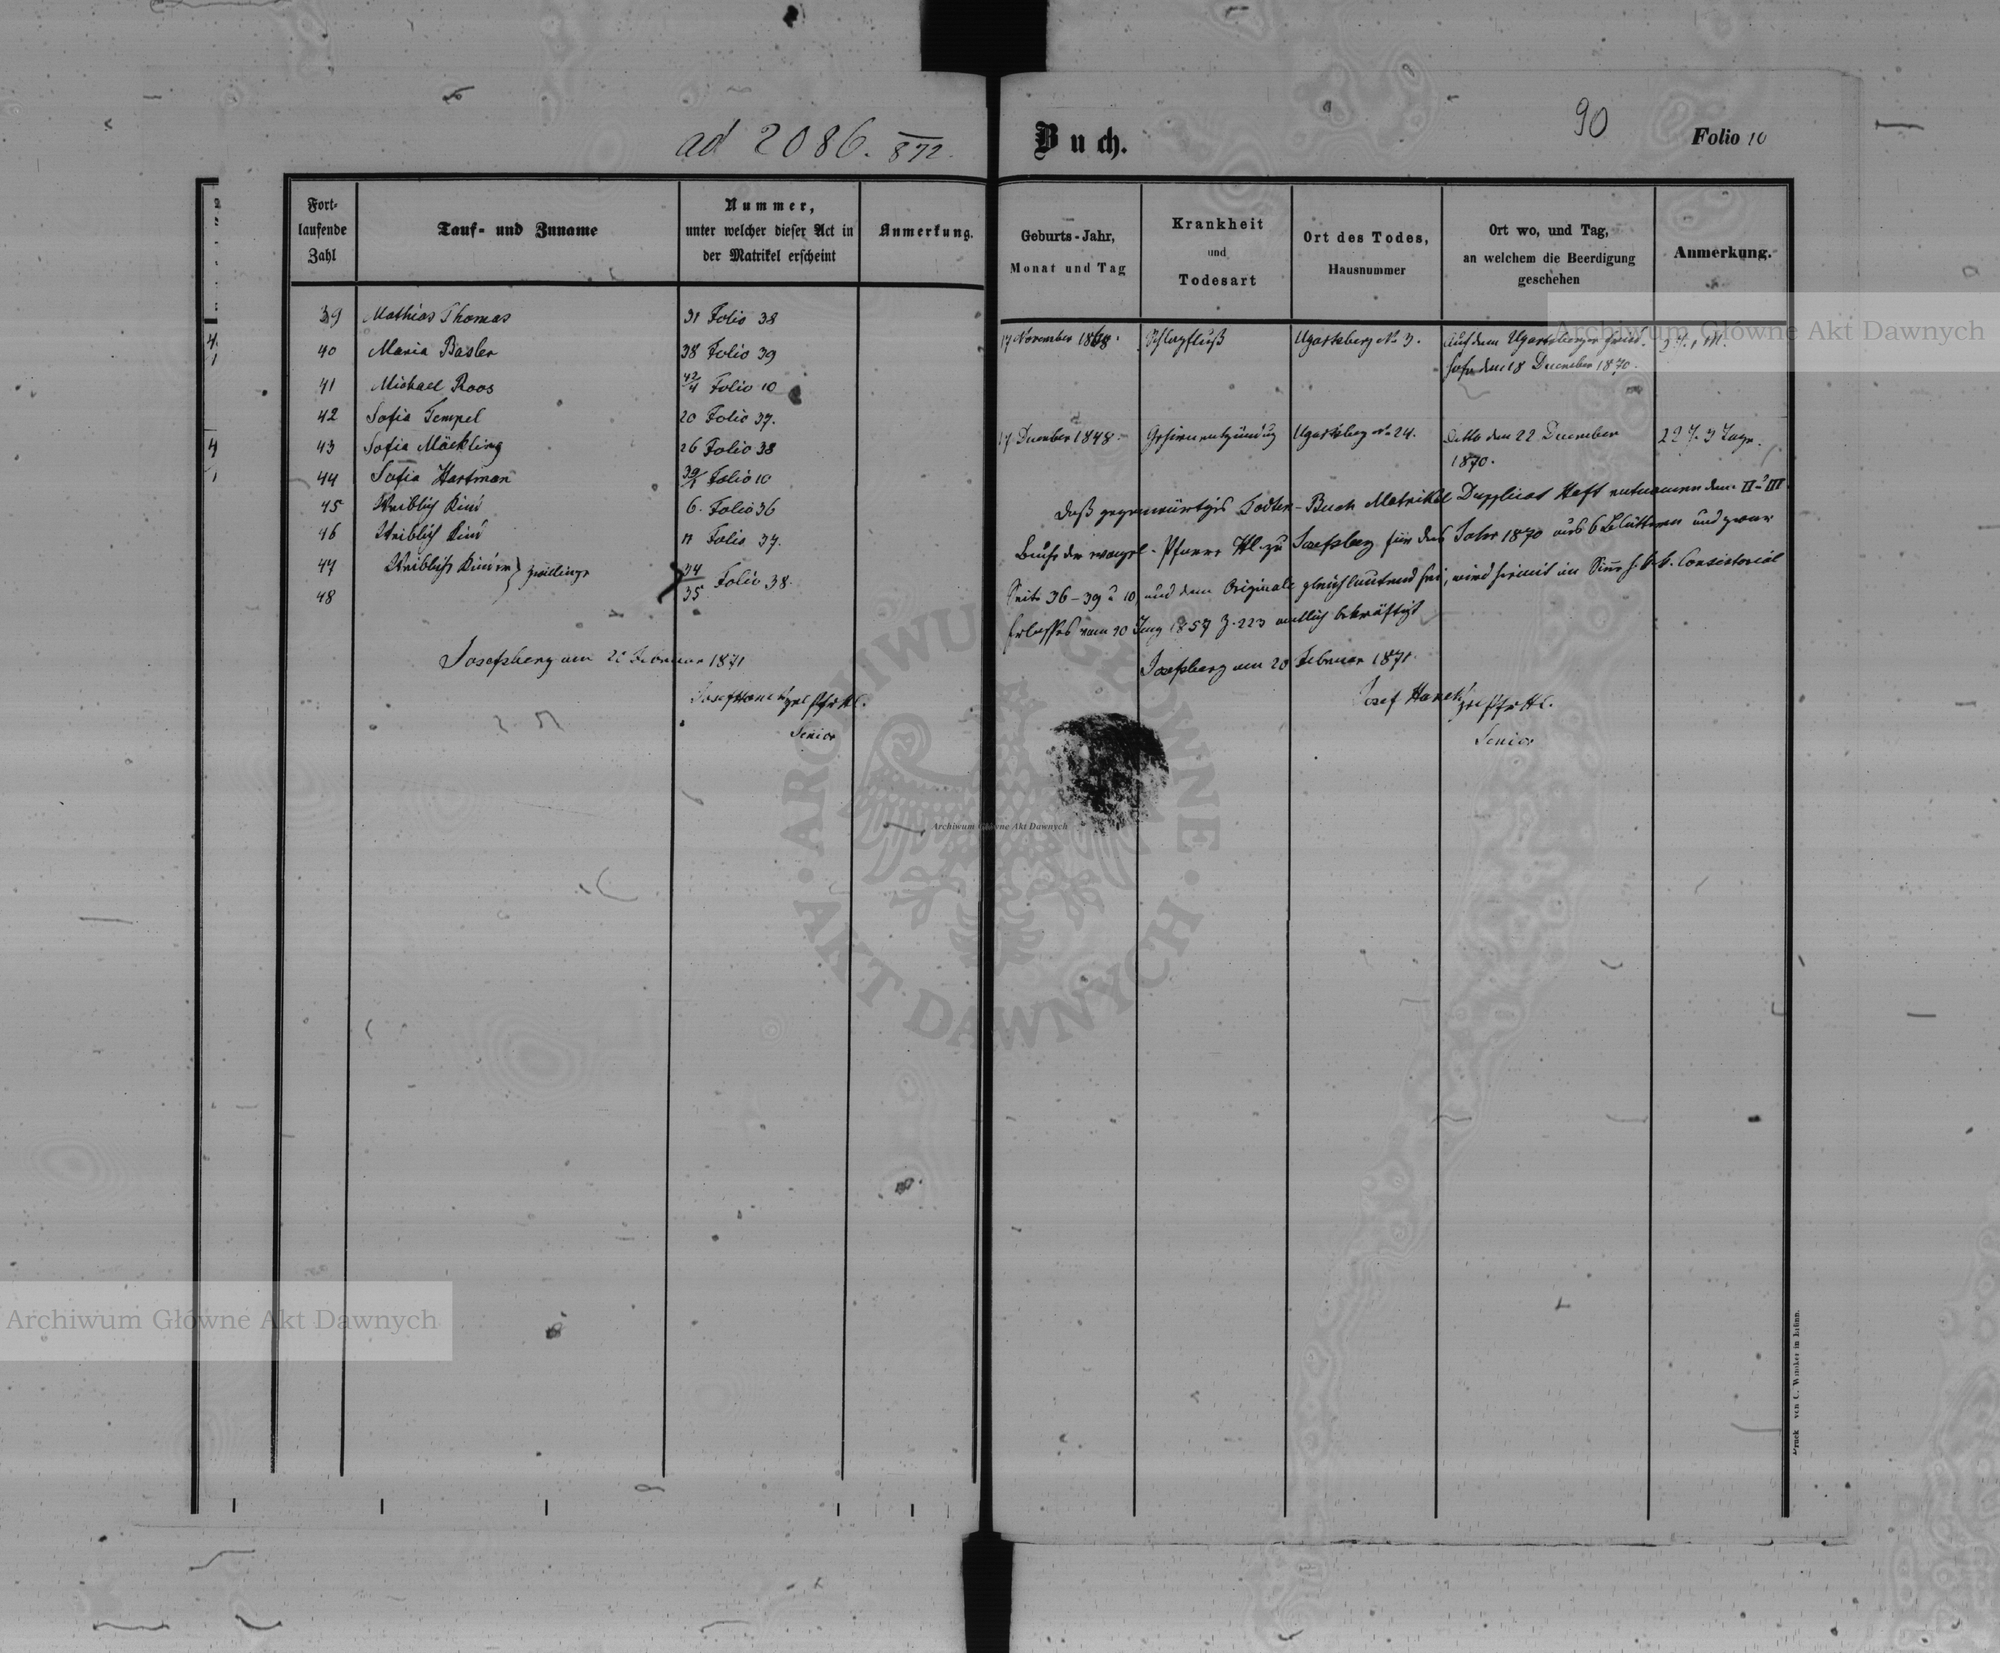 ad 2086. 872.
Buch.
90
Folio 10
Fort-
laufende
Zahl
Tauf- und Zuname
Nummer,
unter welcher dieser Act in
der Matrikel erscheint
Anmerkung.
39 Mathias Thomas 31 Folio 38
40 Maria Basler 38 Folio 39
41 Michael Roos 42/4 Folio 10
42 Sofia Tempel 20 Folio 37.
43 Sofia Möckling 26 Folio 38
44 Sofia Hartman 39/1 Folio 10
45 Weiblich Kind 6. Folio 36
46 Weiblich Kind 11 Folio 37.
47 Weiblich Kinder } Zwillinge 34
48 35 Folio 38.
Josefsberg am 20 Februar 1871
Josef Hanek
Senior
Geburts-Jahr,
Monat und Tag
Krankheit
und
Todesart
Ort des Todes,
Hausnummer
Ort wo, und Tag,
an welchem die Beerdigung
geschehen
Anmerkung.
17 November 1868. Schlagfluß Ugartsberg No 3. Auf dem Ugartsberger Fried-
hofe den 18 December 1870.
17 December 1848. Gehirnentzündung Ugartsberg No 24. Ditto den 22 December 22 J. 3 Tage.
1870.
Daß gegenwärtiges Todten-Buch Matrikel Duplicat Heft entnommen dem II u III
Buche der evangel. Pfarre zu Josefsberg für das Jahr 1870 aus 6 Blättern und zwar
Seite 36-39 u 10, und dem Originale gleichlautend sei, wird hiemit im Sinne h. k. k. Consistorial
Erlasses vom 1857 Z. 223 amtlich bekräftigt
Josefsberg am 20 Februar 1871.
Josef Hanek
Senior
Druck von C. Winiker in Brünn.
Archiwum Główne Akt Dawnych
ARCHIWUM GŁÓWNE
· AKT DAWNYCH ·
Archiwum Główne Akt Dawnych
Archiwum Główne Akt Dawnych